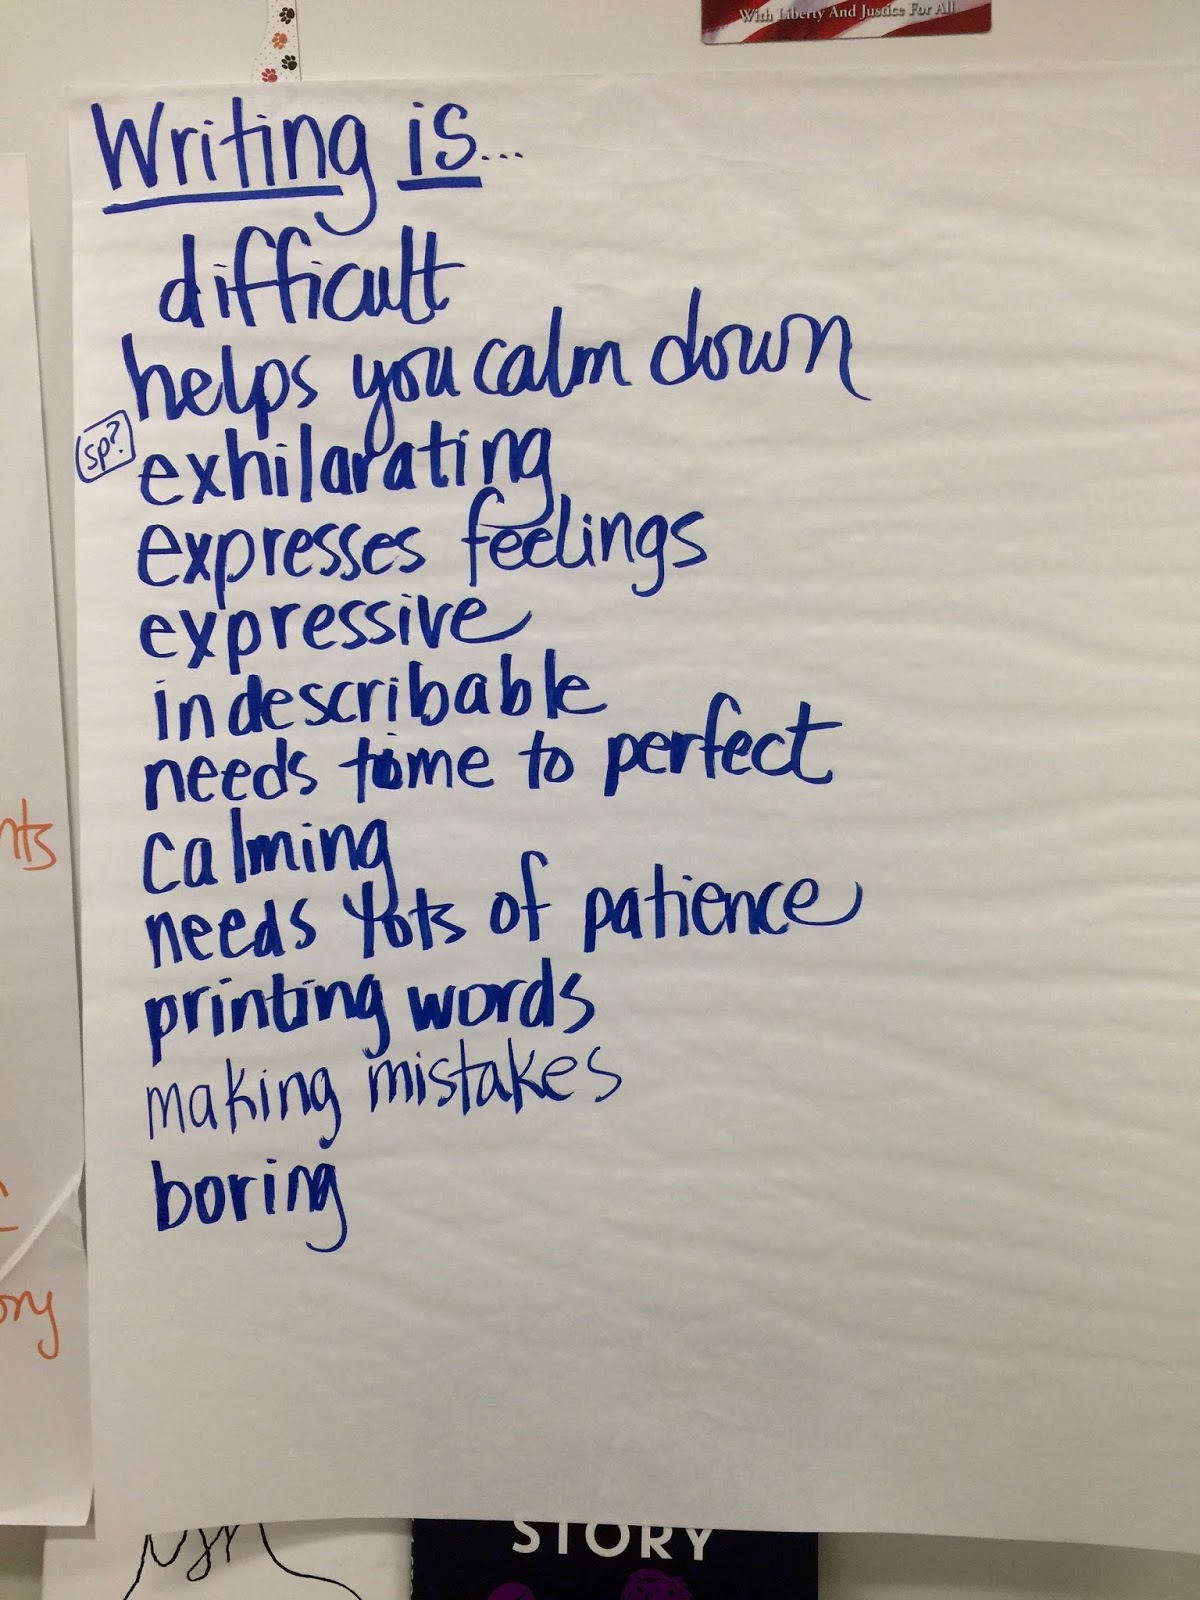 With Liberty And Justice For All
Writing is...
difficult
helps you calm down
sp?
exhilarating
expresses feelings
expressive
indescribable
needs time to perfect
calming
needs lots of patience
printing words
making mistakes
boring
nts
ory
STORY